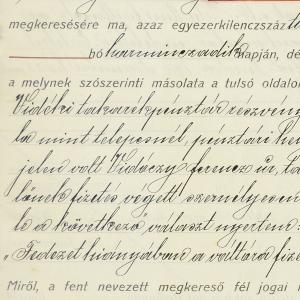 megkeresésére ma, azaz egyezerkilenczszáz
hó harminczadik napján, dé
a melynek szószerinti másolata a tulsó oldalo
Vidéki takarékpénztár részvény
la mint telepesnél, pénztári he
jelen volt Vidóczy ferencz úr,
lőnek fizetés végett személyesen
le a következő választ nyertem:
„Fedezet hiányában a váltóra fize
Miről, a fent nevezett megkereső fél jogai